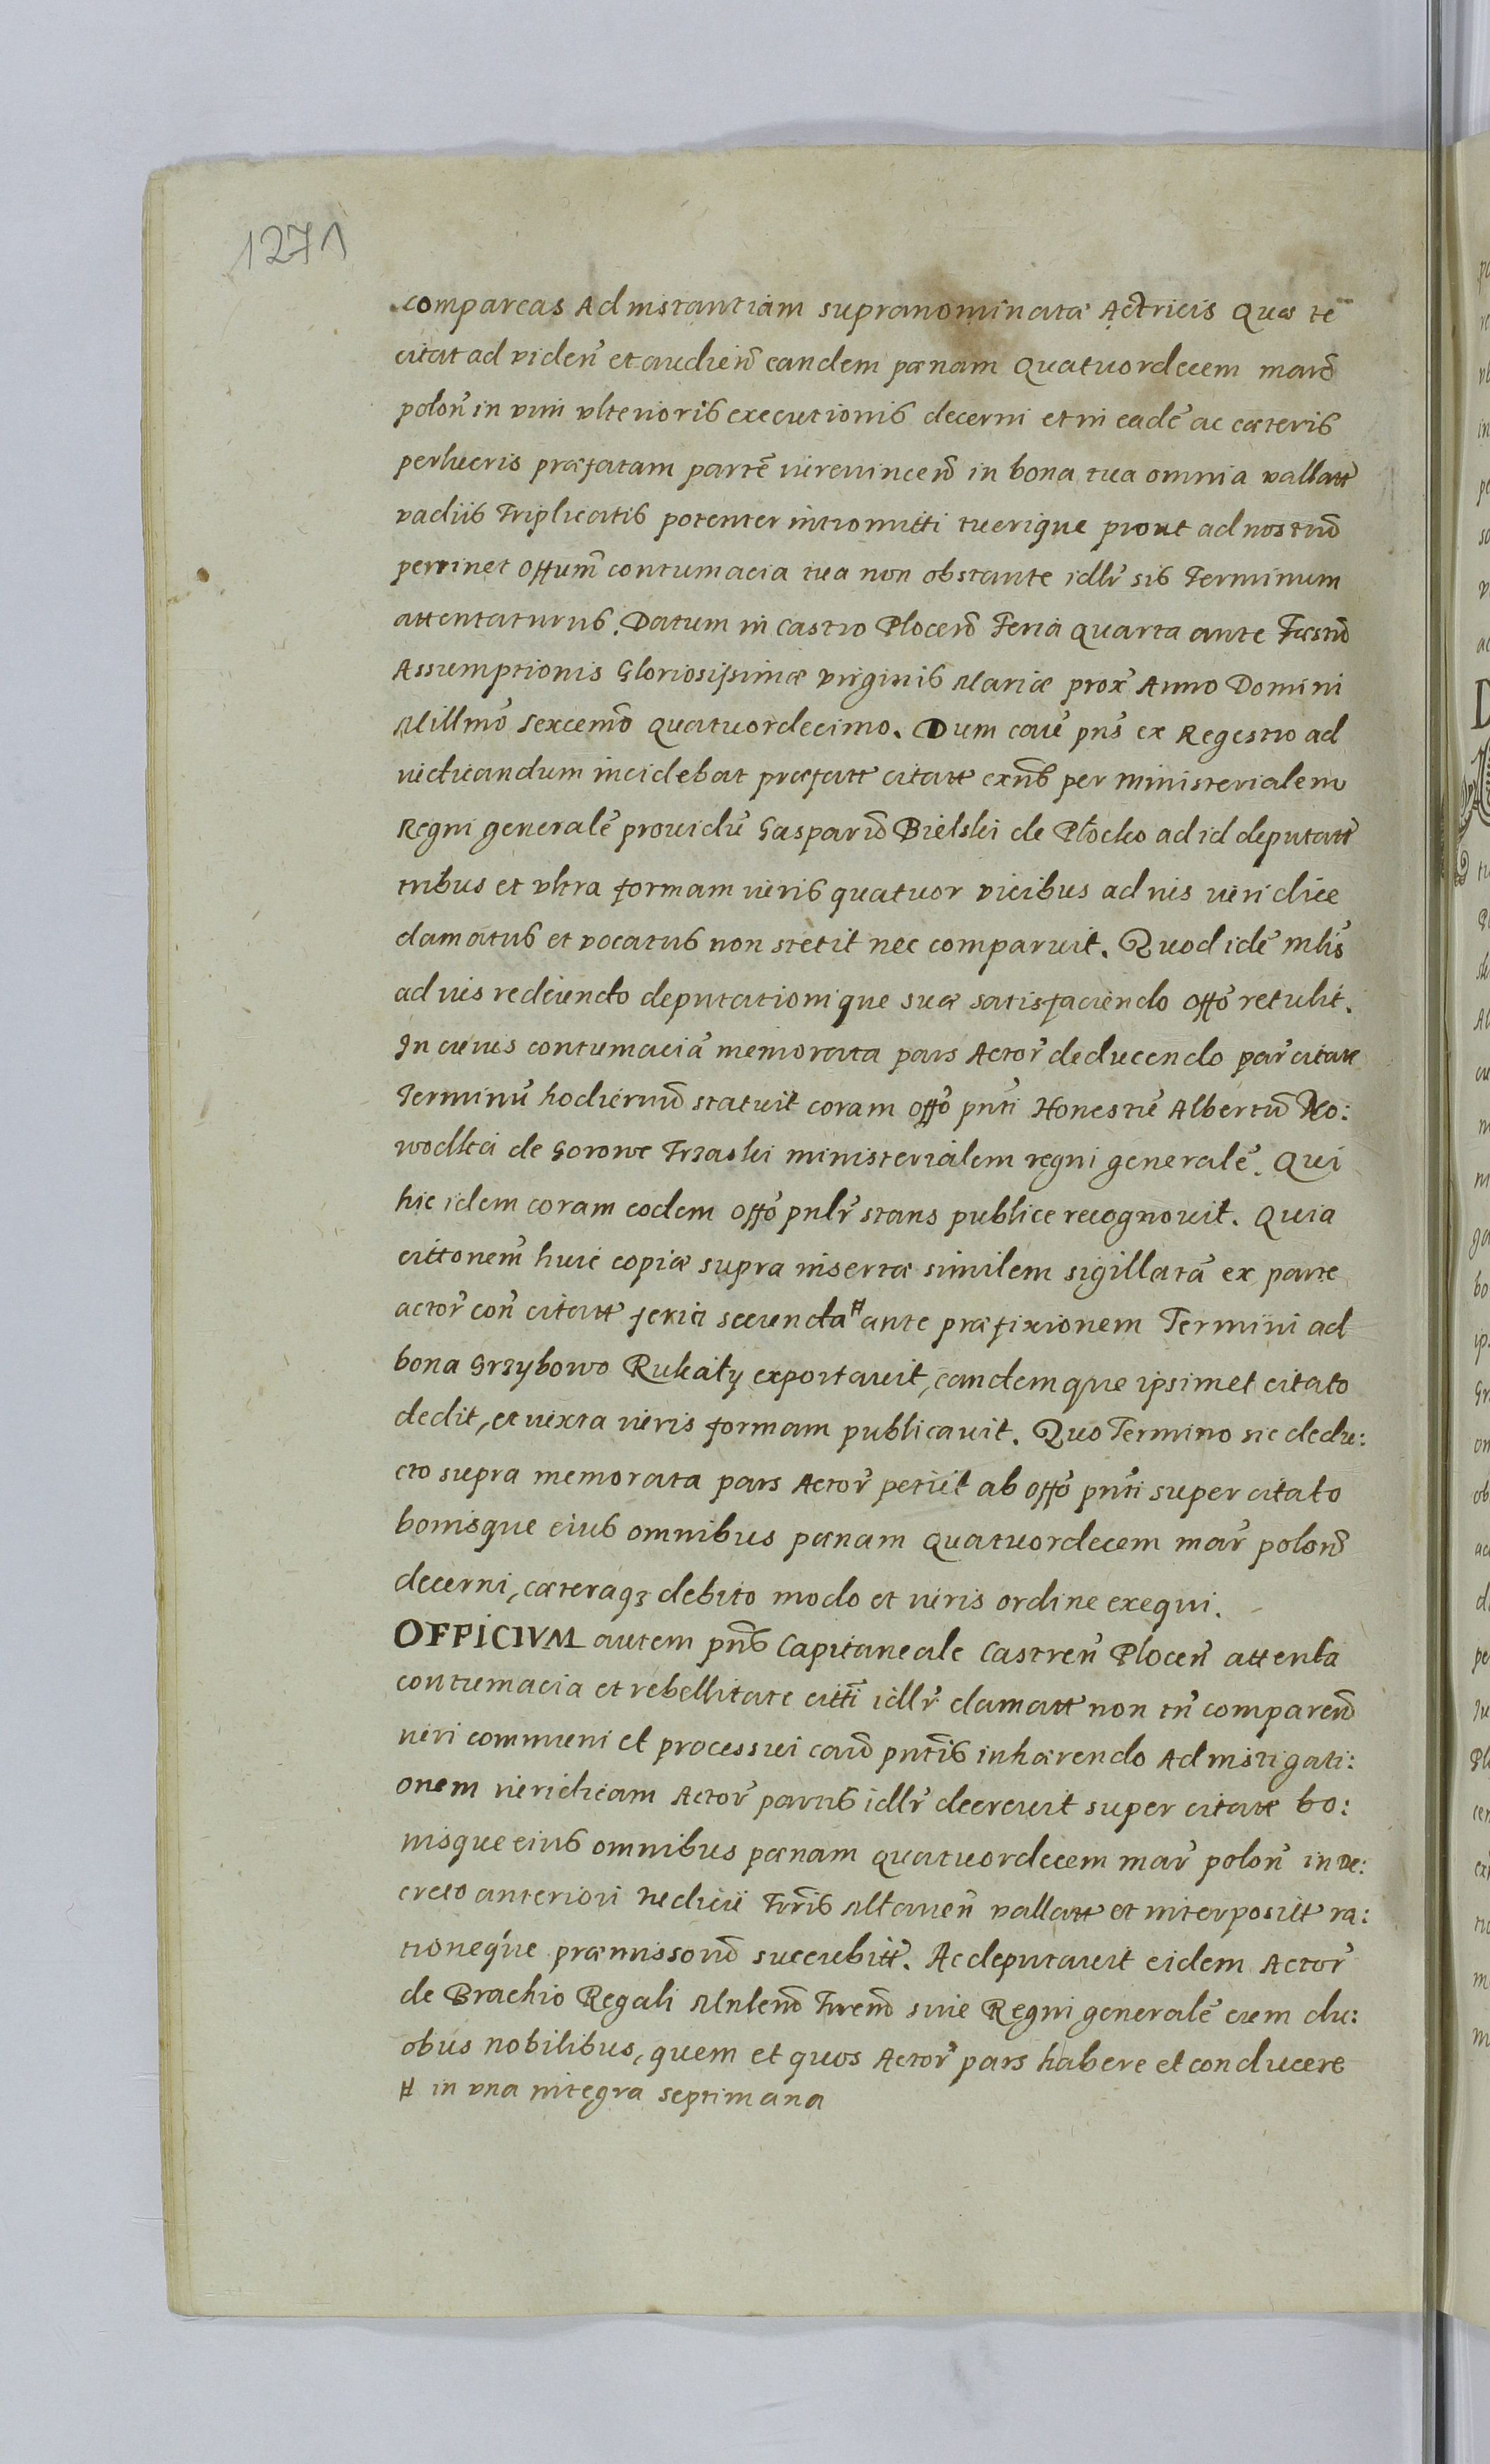 1271
compareas Ad instantiam supranominatæ Actricis Quæ te
citat ad viden̄ et audien̄ eandem pœnam Quatuordecem marc̄
polon̄ in vim vlterioris executionis decerni et in eadē ac cæteris
perlucris præfatam partē iurevincen̄ in bona tua omnia vallatt
vadiis Triplicatis potenter intromitti tuerique prout ad nostrū
pertinet Offum̄ contumacia tua non obstante idlr̄ sis Terminum
attentaturus. Datum in Castro Plocen̄ Feria Quarta ante Fæstū
Assumptionis Gloriosissimæ virginis Mariæ prox̄ Anno Domini
Millmō sexcenmō Quatuordecimo. Dum cauē pn̄s ex Regestro ad
iudicandum incidebat præfatt citatt exn̄s per ministerialem
Regni generalē prouidū Gasparū Bielski de Płocko ad id deputatt
tribus et vltra formam iuris quatuor vicibus ad ius iuridice
clamatus et vocatus non stetit nec comparuit. Quod idē mlīs
ad ius redeundo deputationique suæ satisfaciendo Offō retulit.
In cuius contumaciā memorata pars Actor̄ deducendo par̄ citatt
Terminū hodiernū statuit coram offō pn̄ti Honestū Albertū No:
wodlka de Gorowe Trzaski ministerialem regni generalē. Qui
hic idem coram eodem offō pnlr̄ stans publice recognouit. Quia
cittonem̄ huic copiæ supra insertæ similem sigillatā ex parte
actor̄ con̄ citatt feria secunda # ante præfixionem Termini ad
bona Grzybowo Rukały exportauit, eandemque ipsimet citato
dedit, et iuxta iuris formam publicauit. Quo Termino sic dedu:
cto supra memorata pars Actor̄ petiit ab offō pn̄ti super citato
bonisque eius omnibus pœnam Quatuordecem mar̄ polon̄
decerni, cæteraq3 debito modo et iuris ordine exequi.
OFFICIVM autem pn̄s Capitaneale Castren̄ Plocen̄ attenta
contumacia et rebellitate citti idlr̄ clamatt non tn̄ comparen̄
iuri communi et processui cau̅ pntīs inhærendo Ad instigati:
onem iuridicam Actor̄ partis idlr̄ decreuit super citatt bo:
nisque eius omnibus pœnam quatuordecem mar̄ polon̄ in De:
creto anteriori iudicii Trrīs Mławen̄ vallatt et interposuitt ra:
tioneque præmissorū succubitt. Ac deputauit eidem Actor̄
de Brachio Regali Mnlen̄ Trren̄ siue Regni generalē cum du:
obus nobilibus, quem et quos Actor̄ pars habere et conducere
# in vna integra septimana